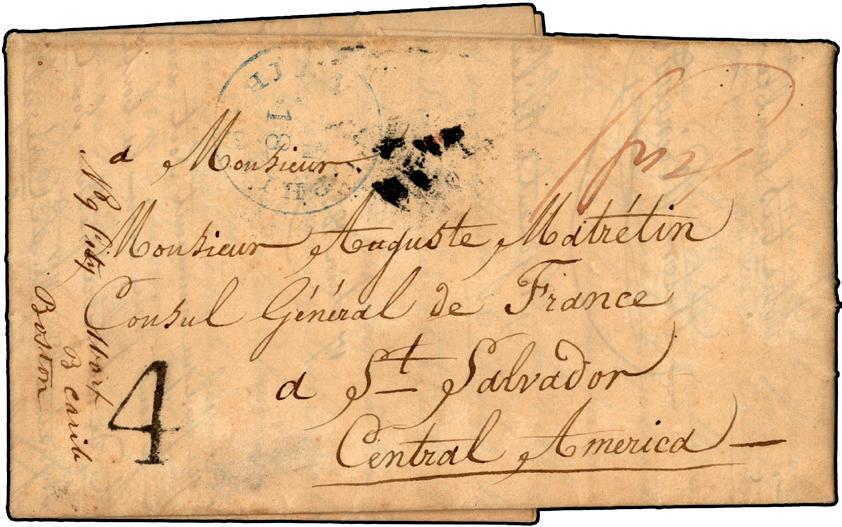 a Monsieur
Monsieur Auguste Matrétin
Consul Général de France
a St Salvador
Central America
4
Boston